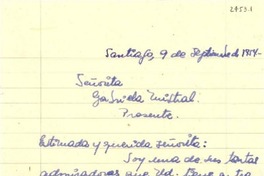 24531
Santiago, 9 de Septiembre de 1954.-
Señorita
Gabriela Mistral.
Presente.
Estimada y querida señorita:
Soy una de sus tantas
admiradoras que Ud. tiene a tra